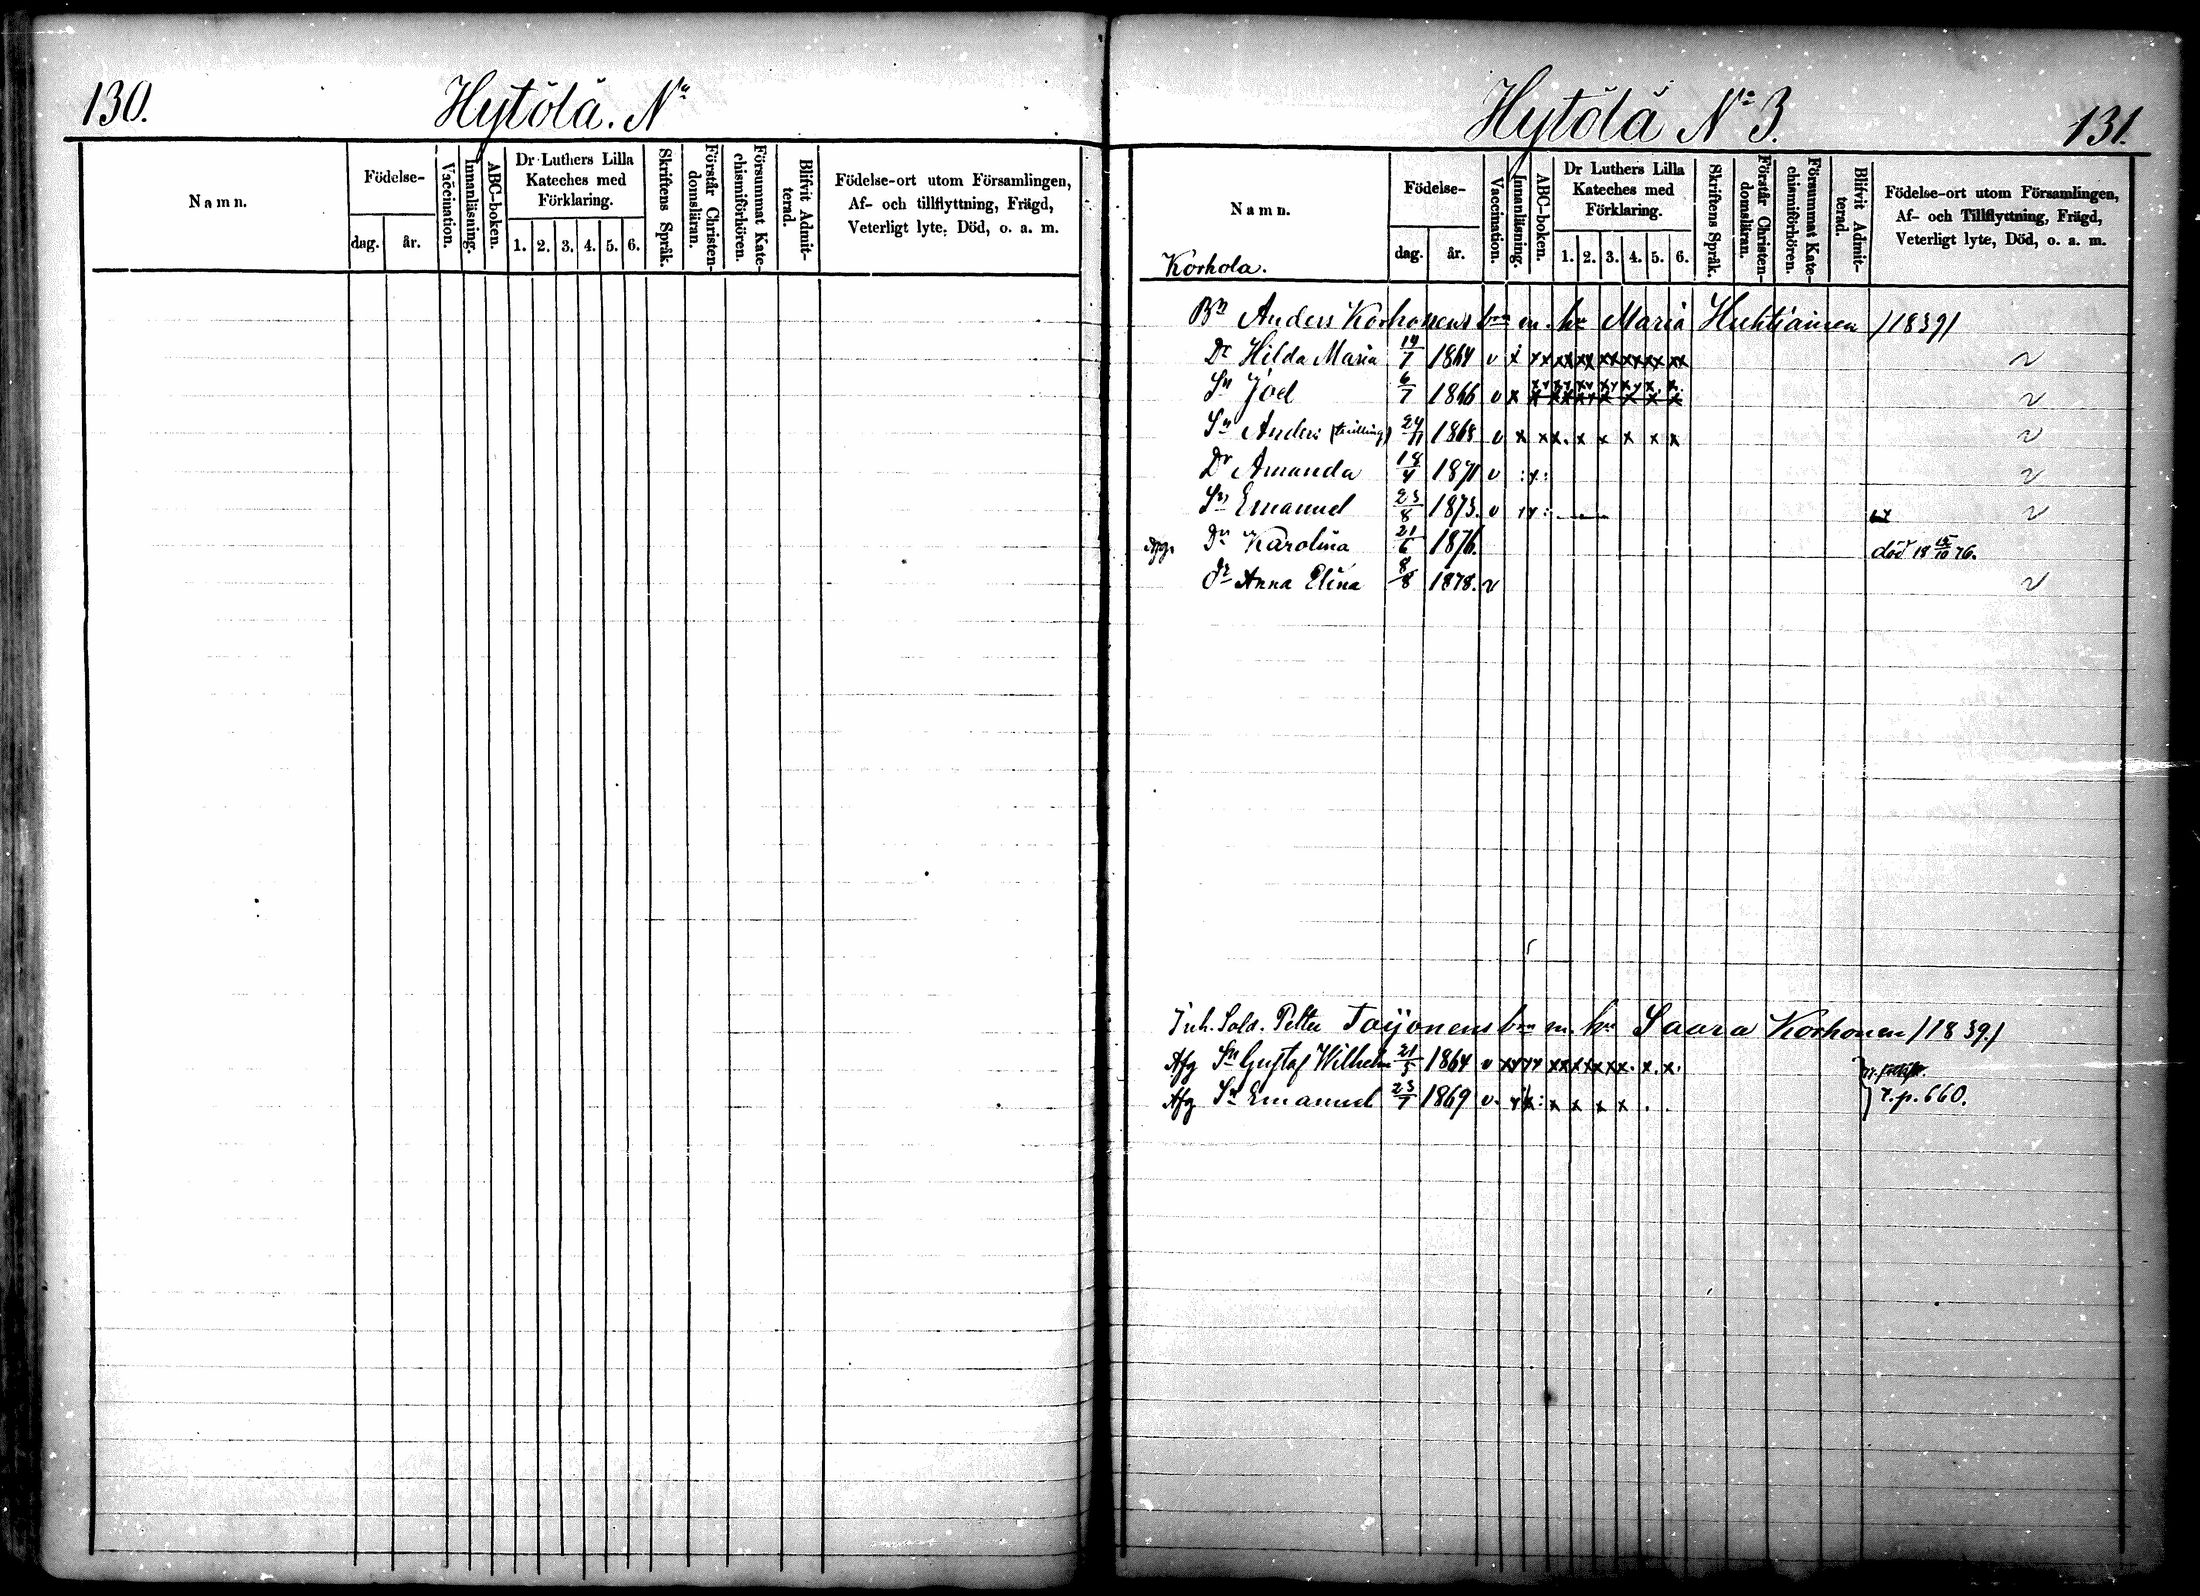 130.
Hytölä. No
Namn.
Födelse-
dag.
år.
Vaccination.
Innanläsning.
ABC-boken.
Dr Luthers Lilla
Kateches med
Förklaring.
1. 2. 3. 4. 5. 6.
Skriftens Språk.
Förstår Christen-
domsläran.
Försummat Kate-
chismiförhören.
Blifvit Admit-
terad.
Födelse-ort utom Församlingen,
Af- och tillflyttning, Frägd,
Veterligt lyte, Död, o. a. m.
Hytölä No 3.
131.
Namn.
Födelse-
dag.
år.
Vaccination.
Innanläsning.
ABC-boken.
Dr Luthers Lilla
Kateches med
Förklaring.
1. 2. 3. 4. 5. 6.
Skriftens Språk.
Förstår Christen-
domsläran.
Försummat Kate-
chismiförhören.
Blifvit Admit-
terad.
Födelse-ort utom Församlingen,
Af- och Tillflyttning, Frägd,
Veterligt lyte, Död, o. a. m.
Korhola.
Bn Anders Korhonens bn m. hu Maria Huhtiainen /1839/
Dr Hilda Maria 14/7 1864 v x xx xx xx xx xx xx xx
Sn Joel 6/7 1866 v x x x x x x x x
Sn Anders (trilling) 24/11 1868 v x xx. x x x x x
Dr Amanda 18/4 1871 v :x:
Sn Emanuel 23/8 1873. v xx:
Dr Karolina 21/6 1876. död 18 15/10 76.
Dr Anna Elina 8/8 1878. v
Inh. Sold. Petter Toijonens bn m. hu Laura Korhonen /1839./
Afg Sn Gustaf Wilhelm 21/5 1864 v xx xx xx x x x x x. x. x.
Afg Sn Emanuel 23/7 1869 v. x x: x x x x . .
r. p. 660.